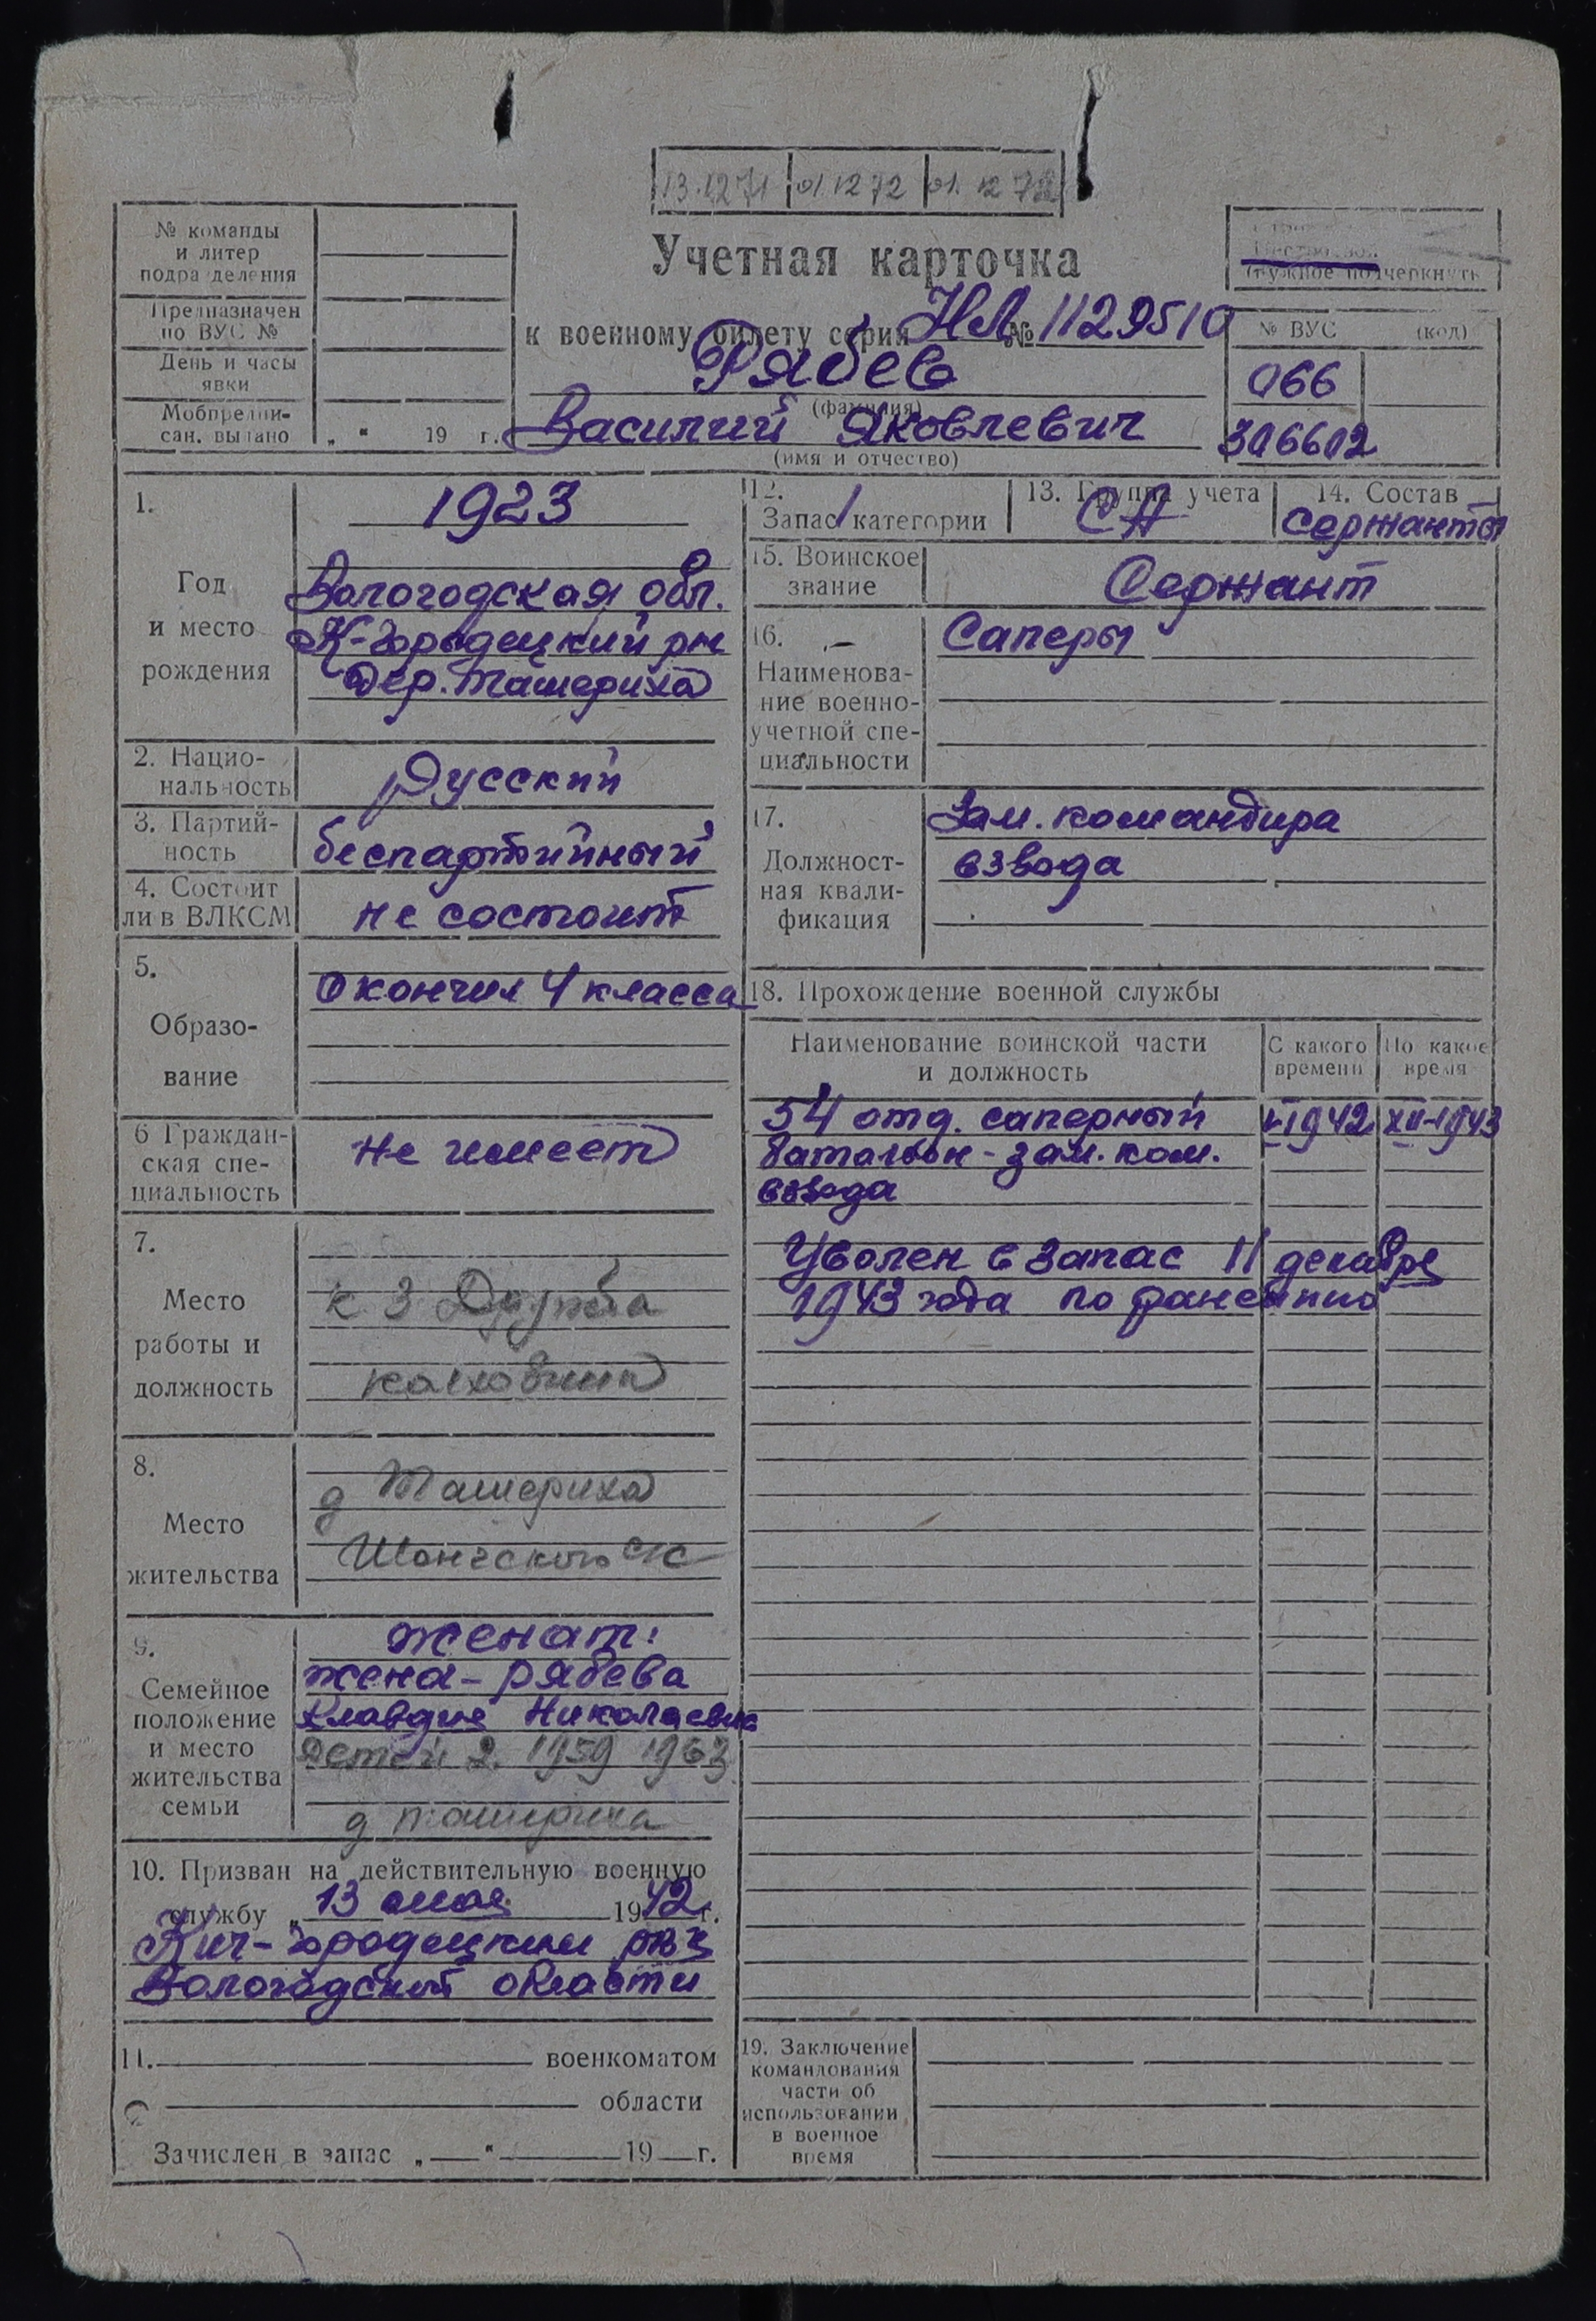 13.12 71 01.12 72 01.12 72
№ команды
и литер
подразделения
Предназначен
по ВУС №
День и часы
явки
Мобпредпи-
сан. выдано „ “ 19 г.
Учетная карточка
к военному билету серия НЛ № 1129510
Рябев
(фамилия)
Василий Яковлевич
(имя и отчество)
(нужное подчеркнуть
№ ВУС (код)
066
306602
1.
Год
и место
рождения
1923
Вологодская обл.
К-Городецкий рн
Дер. Ташериха
2. Нацио-
нальность
Русский
3. Партий-
ность
беспартийный
4. Состоит
ли в ВЛКСМ
не состоит
5.
Образо-
вание
Окончил 4 класса
6 Граждан-
ская спе-
циальность
Не имеет
7.
Место
работы и
должность
к з Дружба
колхозник
8.
Место
жительства
д Ташериха
Шонгского с/с
9.
Семейное
положение
и место
жительства
семьи
женат:
жена - Рябева
Клавдия Николаевна
Детей 2. 1959 1963
д Ташериха
10. Призван на действительную военную
службу „ 13 мая 1942 г.
Кич-Городецким рвк
Вологодской области
11. военкоматом
области
Зачислен в запас „ “ 19 г.
12.
Запас 1 категории
13. Группа учета
СА
14. Состав
Сержанты
15. Воинское
звание
Сержант
16.
Наименова-
ние военно-
учетной спе-
циальности
Саперы
17.
Должност-
ная квали-
фикация
Зам. командира
взвода
18. Прохождение военной службы
Наименование воинской части
и должность
С какого
времени
По какое
время
54 отд. саперный V-1942 XII-1943
батальон - зам. ком.
взвода
Уволен в запас 11 декабря
1943 года по ранению
19. Заключение
командования
части об
использовании
в военное
время